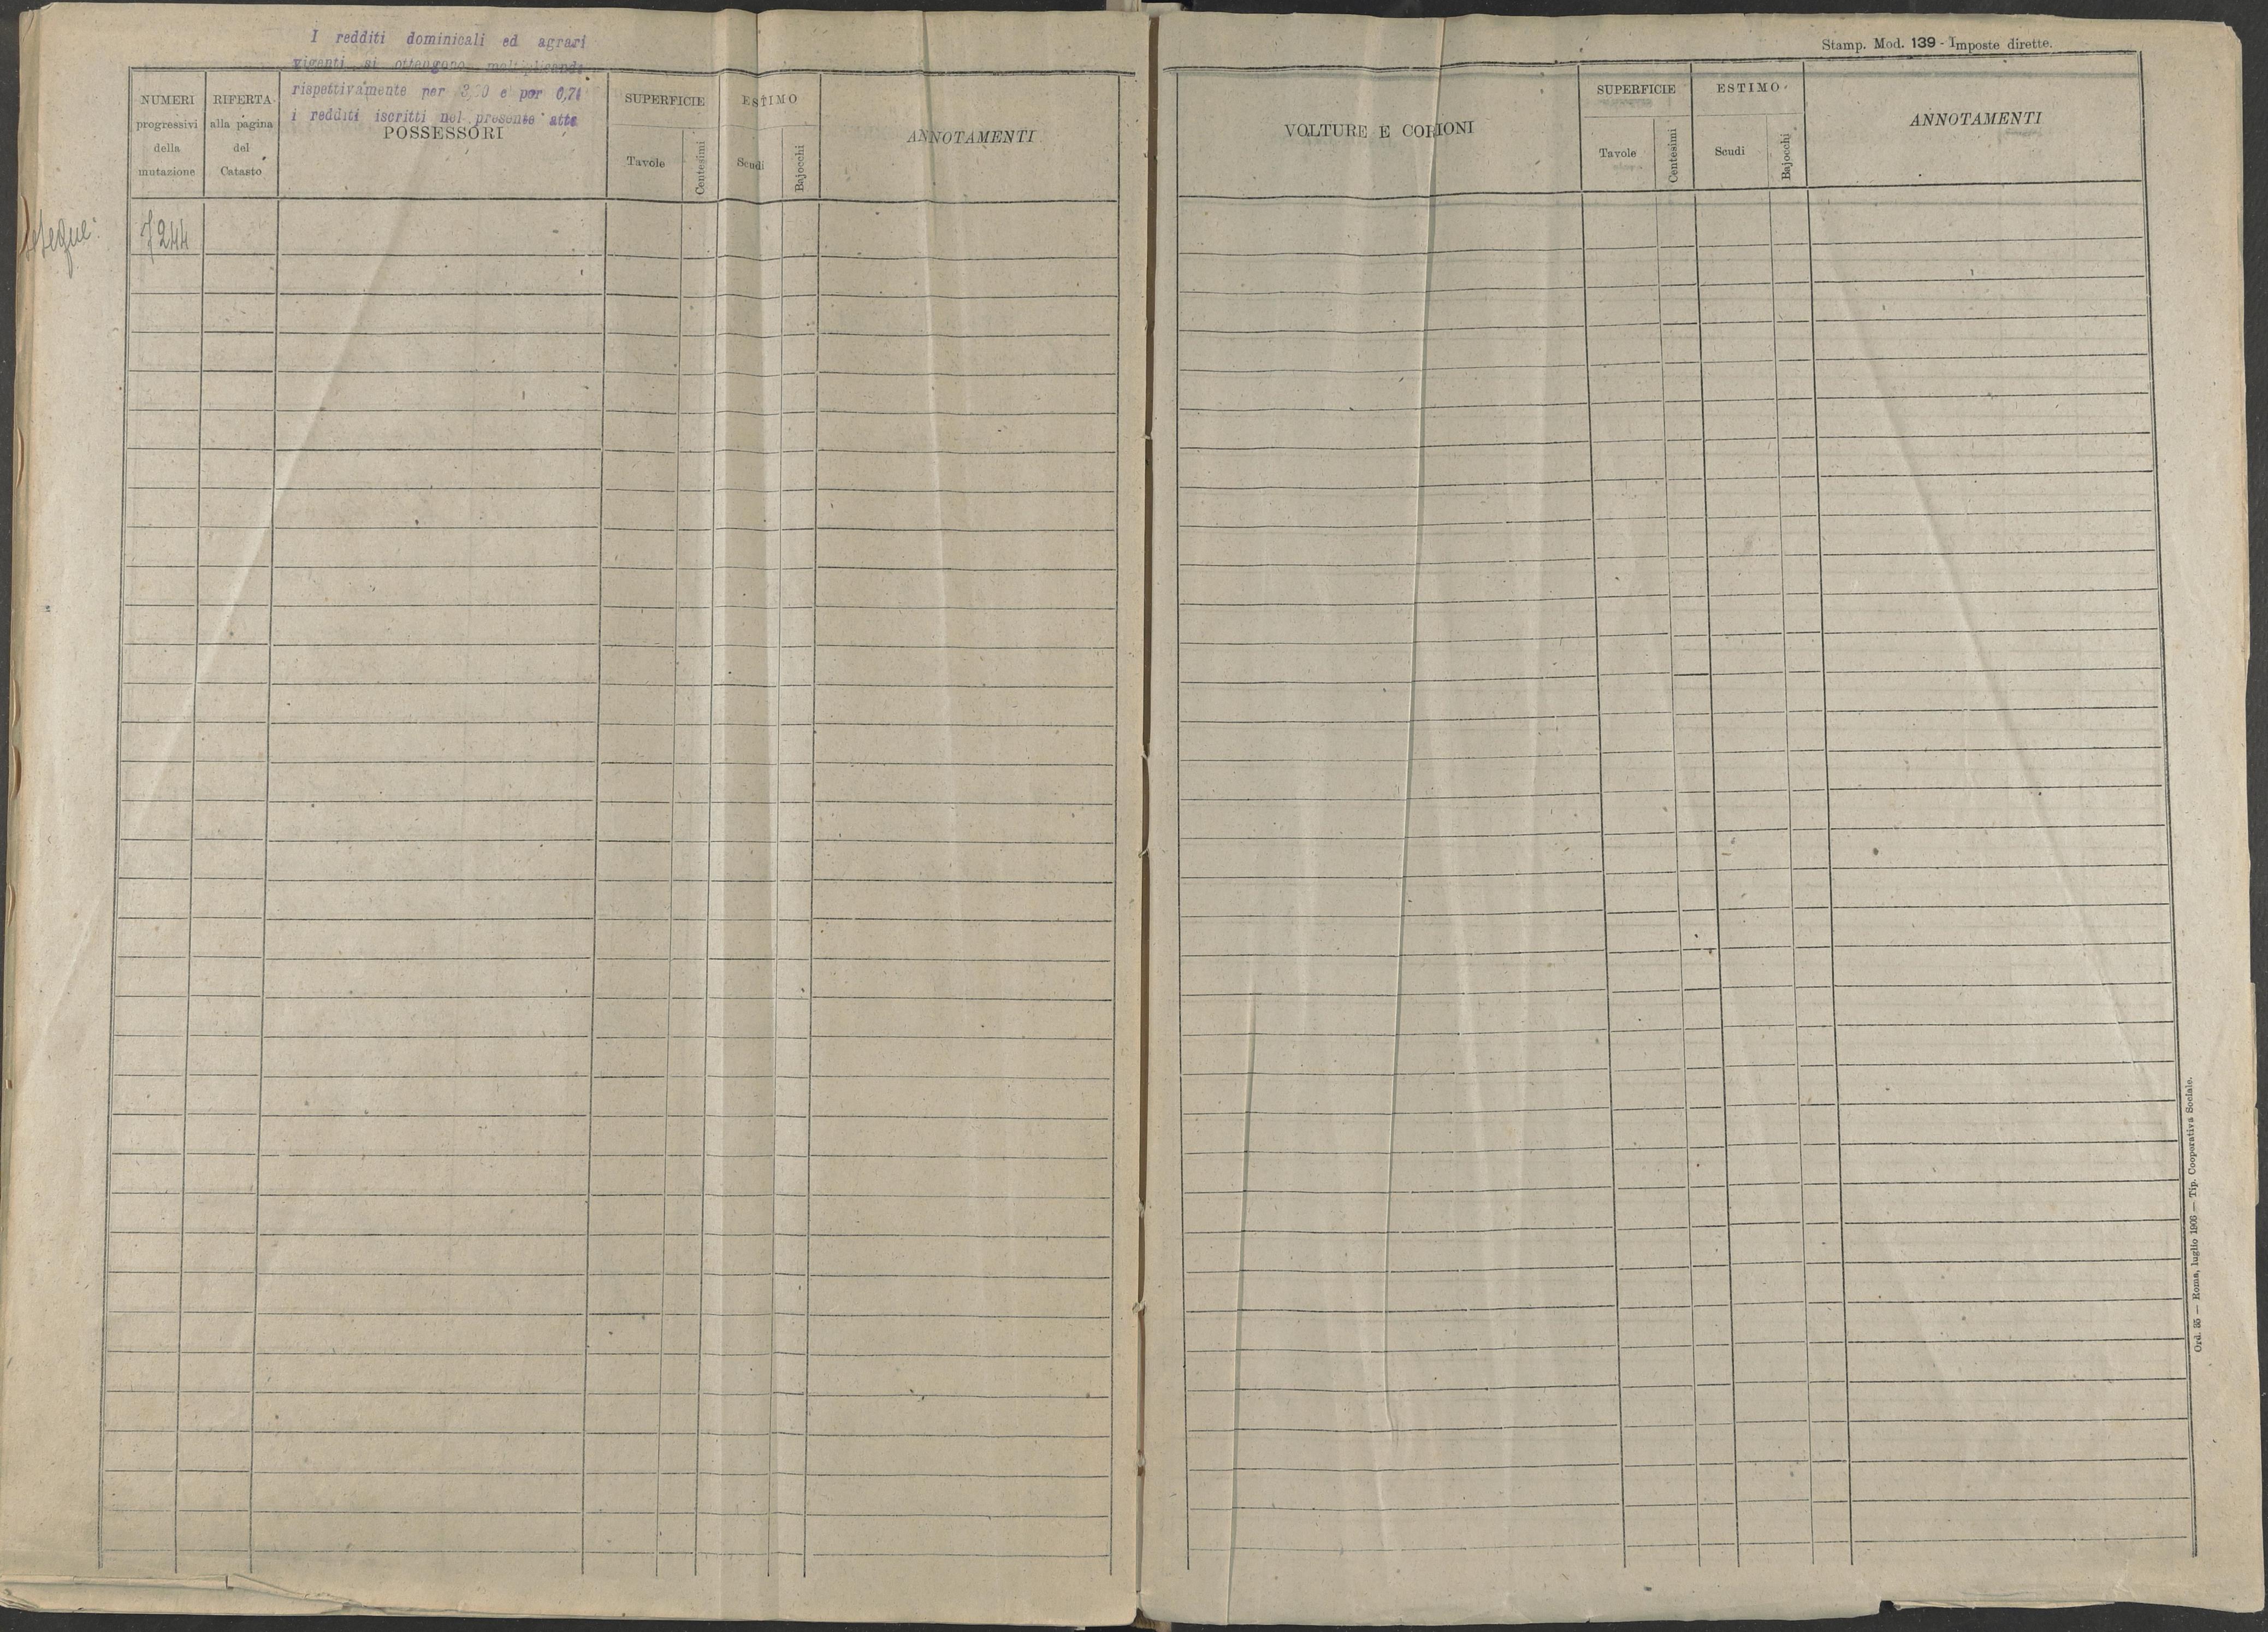 I redditi dominicali ed agrari
vigenti si ottengono moltiplicando
rispettivamente per e per
i redditi iscritti nel presente atto
NUMERI
progressivi
della
mutazione
RIFERTA
alla pagina
del
Catasto
POSSESSORI
SUPERFICIE
Tavole
Centesimi
ESTIMO
Scudi
Bajocchi
ANNOTAMENTI
7244
Stamp. Mod. 139 - Imposte dirette.
VOLTURE E CORIONI
SUPERFICIE
Tavole
Centesimi
ESTIMO
Scudi
Bajocchi
ANNOTAMENTI
Ord. 35 — Roma, luglio 1906 — Tip. Cooperativa Sociale.